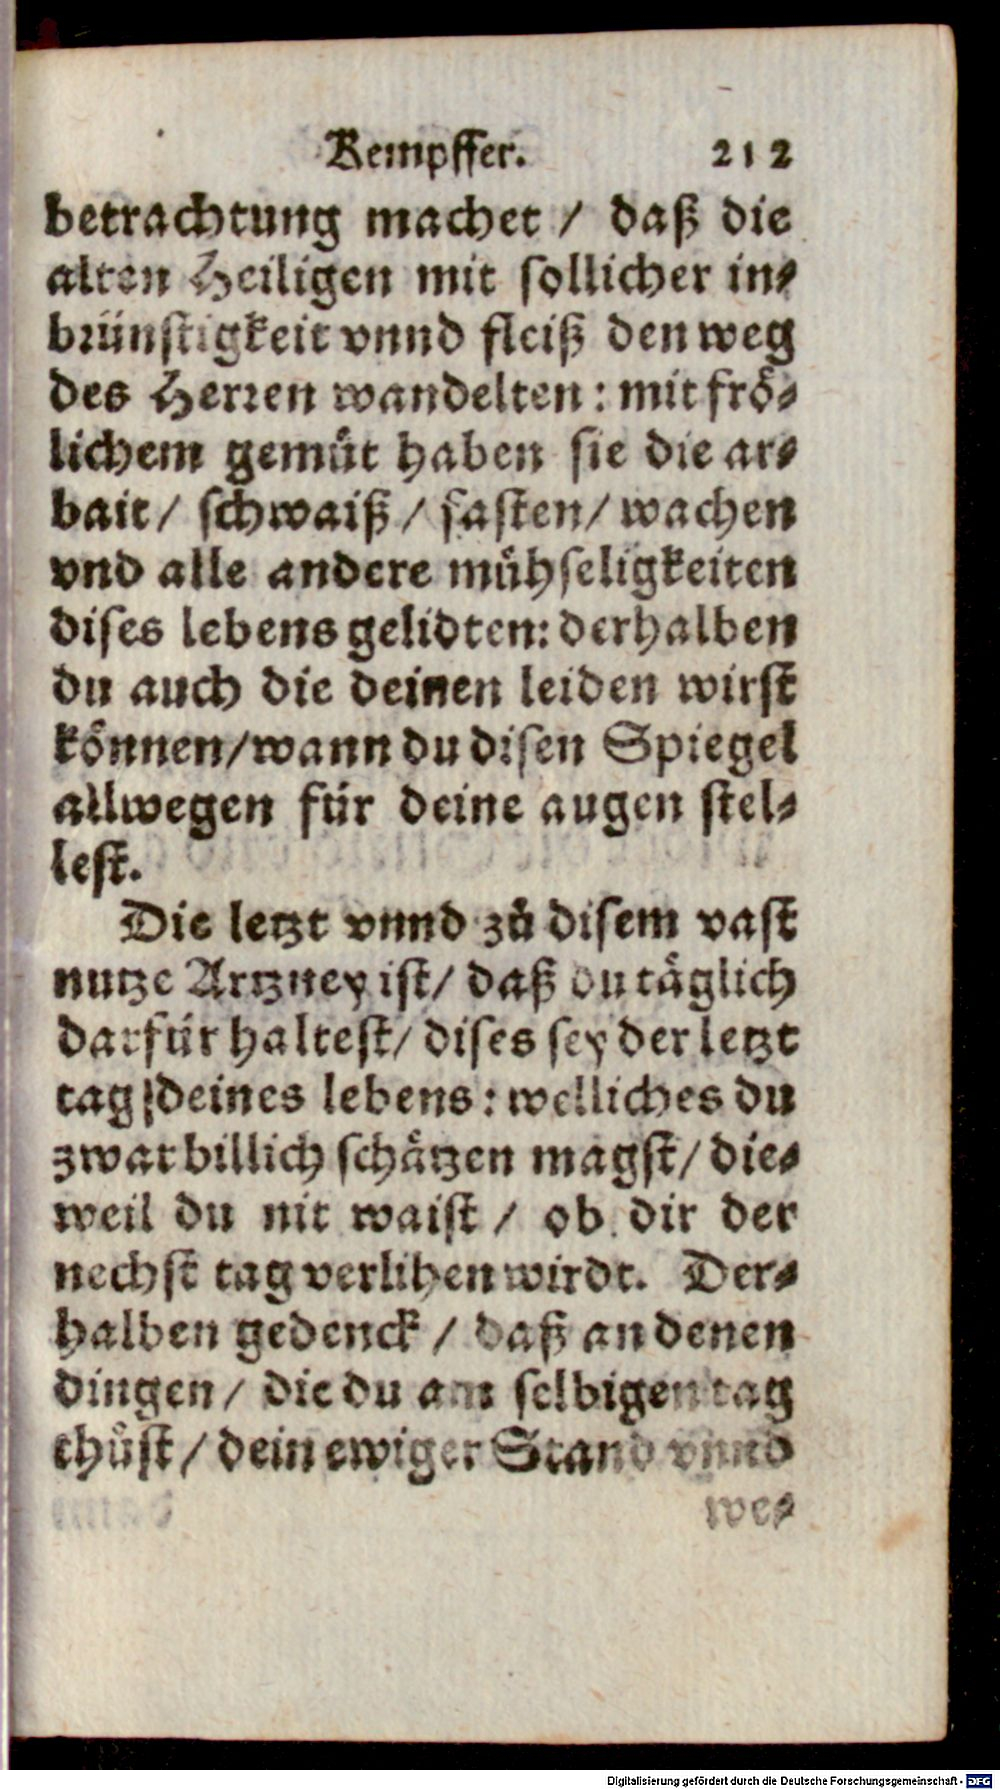 Kempffer. 212
betrachtung machet / daß die
alten Heiligen mit sollicher in⸗
brünstigkeit vnnd fleiß den weg
des Herren wandelten: mit frö⸗
lichem gemüt haben sie die ar⸗
bait / schwaiß / fasten / wachen
vnd alle andere mühseligkeiten
dises lebens gelidten: derhalben
du auch die deinen leiden wirst
können / wann du disen Spiegel
allwegen für deine augen stel⸗
lest.
Die letzt vnnd zů disem vast
nutze Artzney ist / daß du täglich
darfür haltest / dises sey der letzt
tag deines lebens: welliches du
zwar billich schätzen magst / die⸗
weil du nit waist / ob dir der
nechst tag verlihen wirdt. Der⸗
halben gedenck / daß an denen
dingen / die du am selbigen tag
thůst / dein ewiger Stand vnnd
we⸗
Digitalisierung gefördert durch die Deutsche Forschungsgemeinschaft - DFG